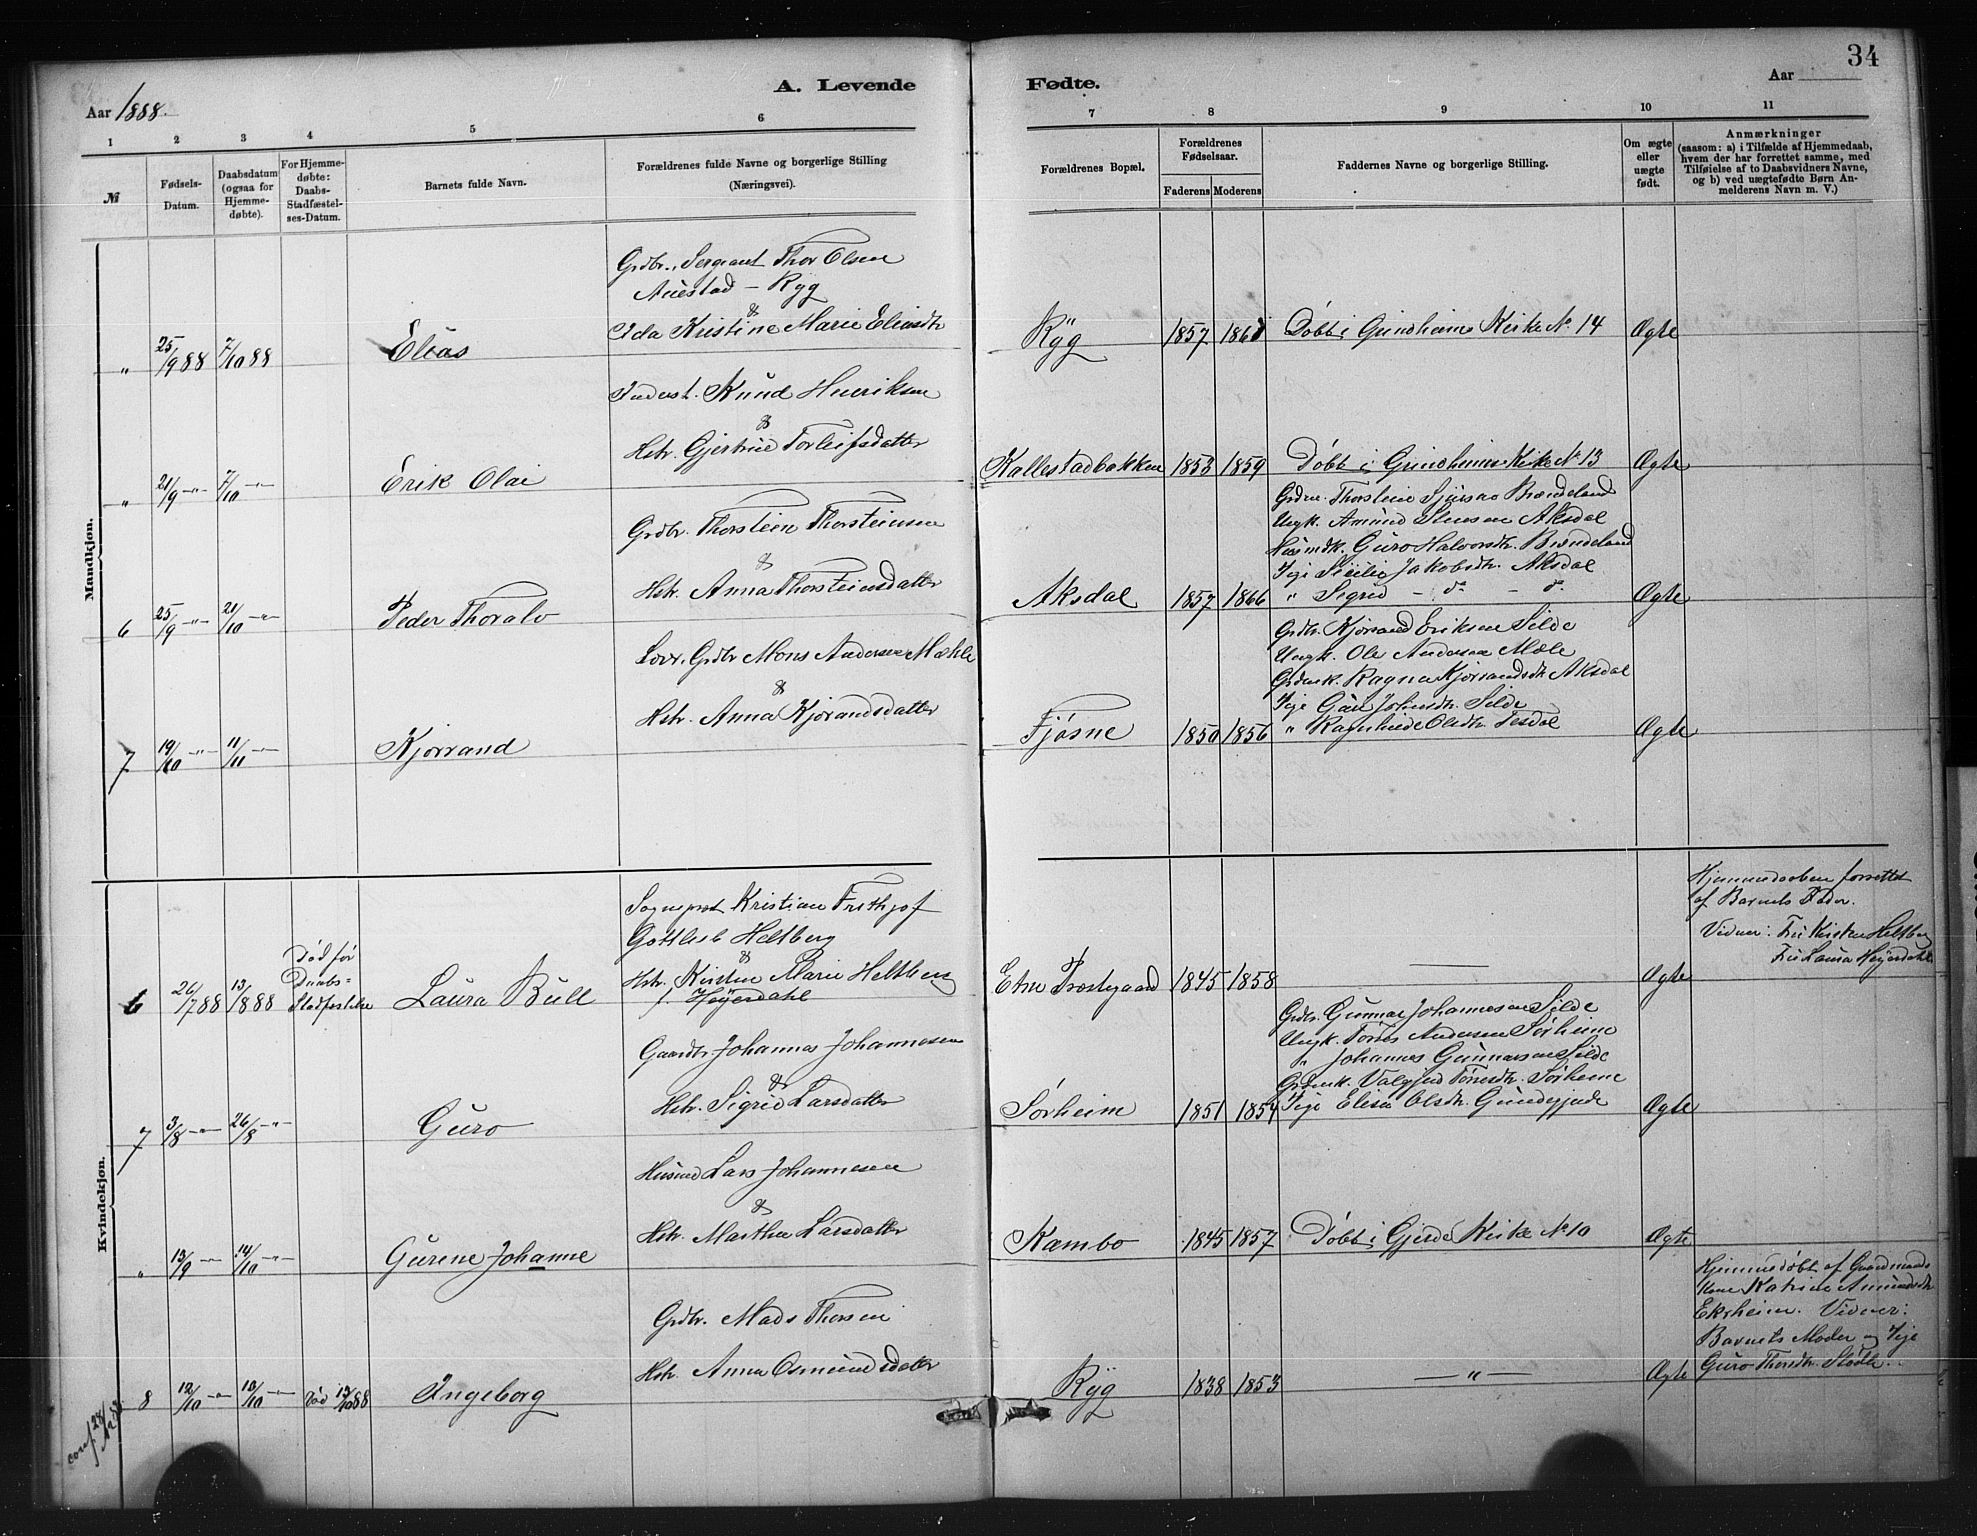 34
A. Levende
Fødte.
Aar 1888.
Aar
1 2 3 4 5 6 7 8 9 10 11
№
Fødsels-
Datum.
Daabsdatum
(ogsaa for
Hjemme-
døbte).
For Hjemme-
døbte:
Daabs-
Stadfæstel-
ses-Datum.
Barnets fulde Navn.
Forældrenes fulde Navne og borgerlige Stilling
(Næringsvei).
Forældrenes Bopæl.
Forældrenes
Fødselsaar.
Faderens Moderens
Faddernes Navne og borgerlige Stilling.
Om ægte
eller
uægte
født.
Anmærkninger
(saasom: a) i Tilfælde af Hjemmedaab,
hvem der har forrettet samme, med
Tilføielse af to Daabsvidners Navne,
og b) ved uægtefødte Børn An-
melderens Navn m. V.)
Mandkjøn.
Grdbr., Sergeant Thor Olsen
Auestad - Ryg
&
Ida Kristine Marie Eliasdtr
" 25/9 88 7/10 88 Elias
Ryg 1857 Døbt i Grindheims Kirke No 14 Ægte
Inderst. Knud Henriksen
&
Hstr. Gjertrue Torleifsdatter
" 21/9 -"- 7/10 -"- Erik Olai
Kallestadbakken 1853 1859 Døbt i Grindheims Kirke No 13 Ægte
Grdbr. Thorstein Thorsteinsen
&
Hstr. Anna Thorsteinsdatter
6 25/9 -"- 21/10 -"- Peder Thoralv
Aksdal 1857 1866
Thorstein Sjursen Brændeland
Ungk. Amund Aksdal
Husmdk. Guro Halvorsdtr. Brændeland
Pige Sicilie Jakobsdtr. Aksdal
" Sigrid - do - do
Ægte
Grdbr Mons Andersen Mæhle
&
Hstr. Anna Kjørandsdatter
7 19/10 -"- 11/11 -"- Kjørrand
Fjøsne 1850 1856
Grdbr. Kjørrand Eriksen Silde
Ungk. Ole Andersen Mæle
Ragna Kjørrandsdtr Aksdal
Pige Guri Johnsdtr. Silde
" Ragnhilde Olsdtr. Tesdal
Ægte
Kvindekjøn.
Sognepst Kristian Frithjof
Gottlieb Heltberg
&
Hstr. Kirstine Marie Heltberg
f. Heyerdahl
6 26/7 88 13/8 88 Død før
Daabs-
Stadfæstelse
Laura Bull
Etne Præstegaard 1845 1858 Ægte
Hjemmedaaben forrettet
af Barnets Fader.
Vidner: Fru Kirsten Heltberg
Fru Laura Heyerdahl
Gaardbr Johannes Johannesen
&
Hstr. Sigrid Larsdatter
7 3/8 -"- 26/8 -"- Guro
Sørheim 1851 1854
Grdbr. Gunnar Johannesen Silde
Ungk. Tørres Andersen Sørheim
" Johannes Gunnarsen Silde
Valgjerd Tørresdtr. Sørheim
Pige Elisa Olsdtr. Gundegjerde
Ægte
Husmd Lars Johannesen
&
Hstr. Martha Larsdatter
" 13/9 -"- 14/10 -"- Gurine Johanne
Kambo 1845 1857 Døbt i Gjerde Kirke No 10 Ægte
Grdbr. Mads Thorsen
Hstr. Anna Osmundsdatter
8 12/10 -"- 13/10 -"- Død 13/10 88 Ingeborg
Ryg 1838 1853 -"- Ægte
Hjemmedøbt af Gaardmands
kone Katrine Amundsdtr
Eksheim. Vidner:
Barnets Moder og Pige
Guro Thorsdtr. Stødle.